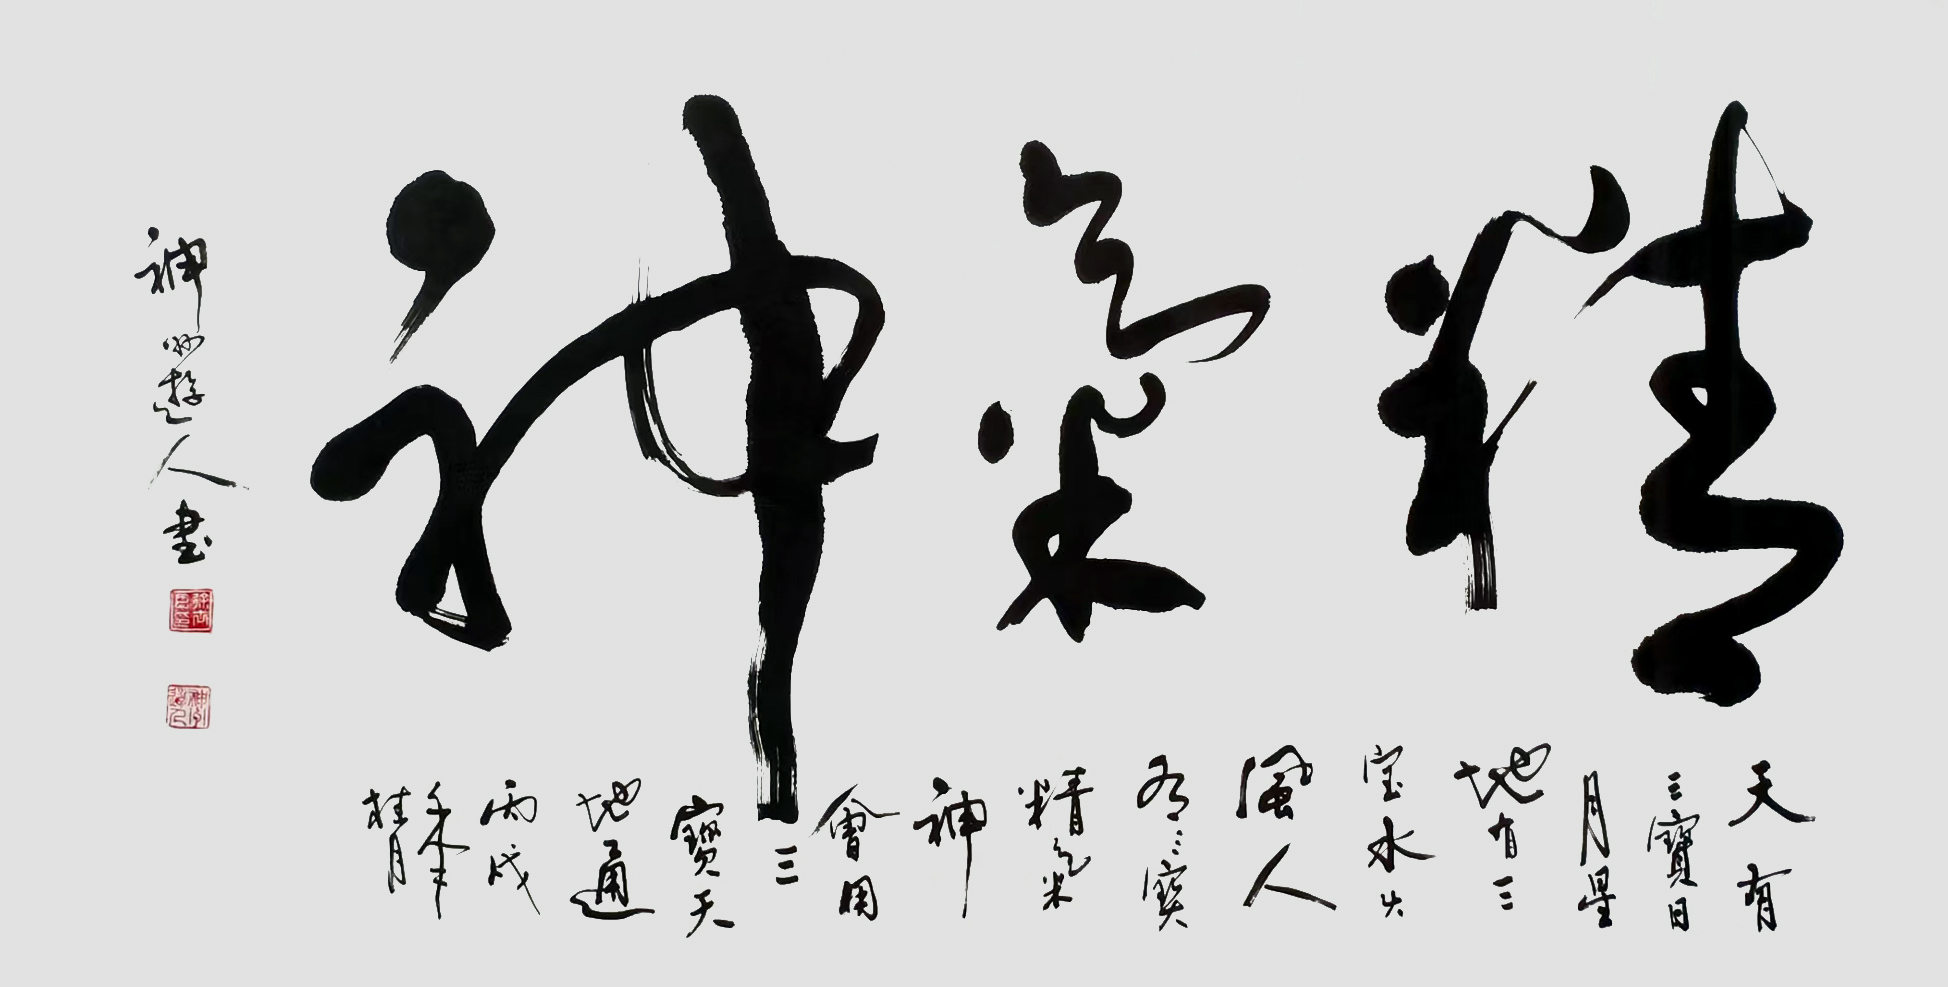 精氣神
天有
三寶日
月星
地有三
宝水火
風人
有三寶
精氣
神
會用
三
寶天
地通
丙戌
秊
桂月
神州遊人書